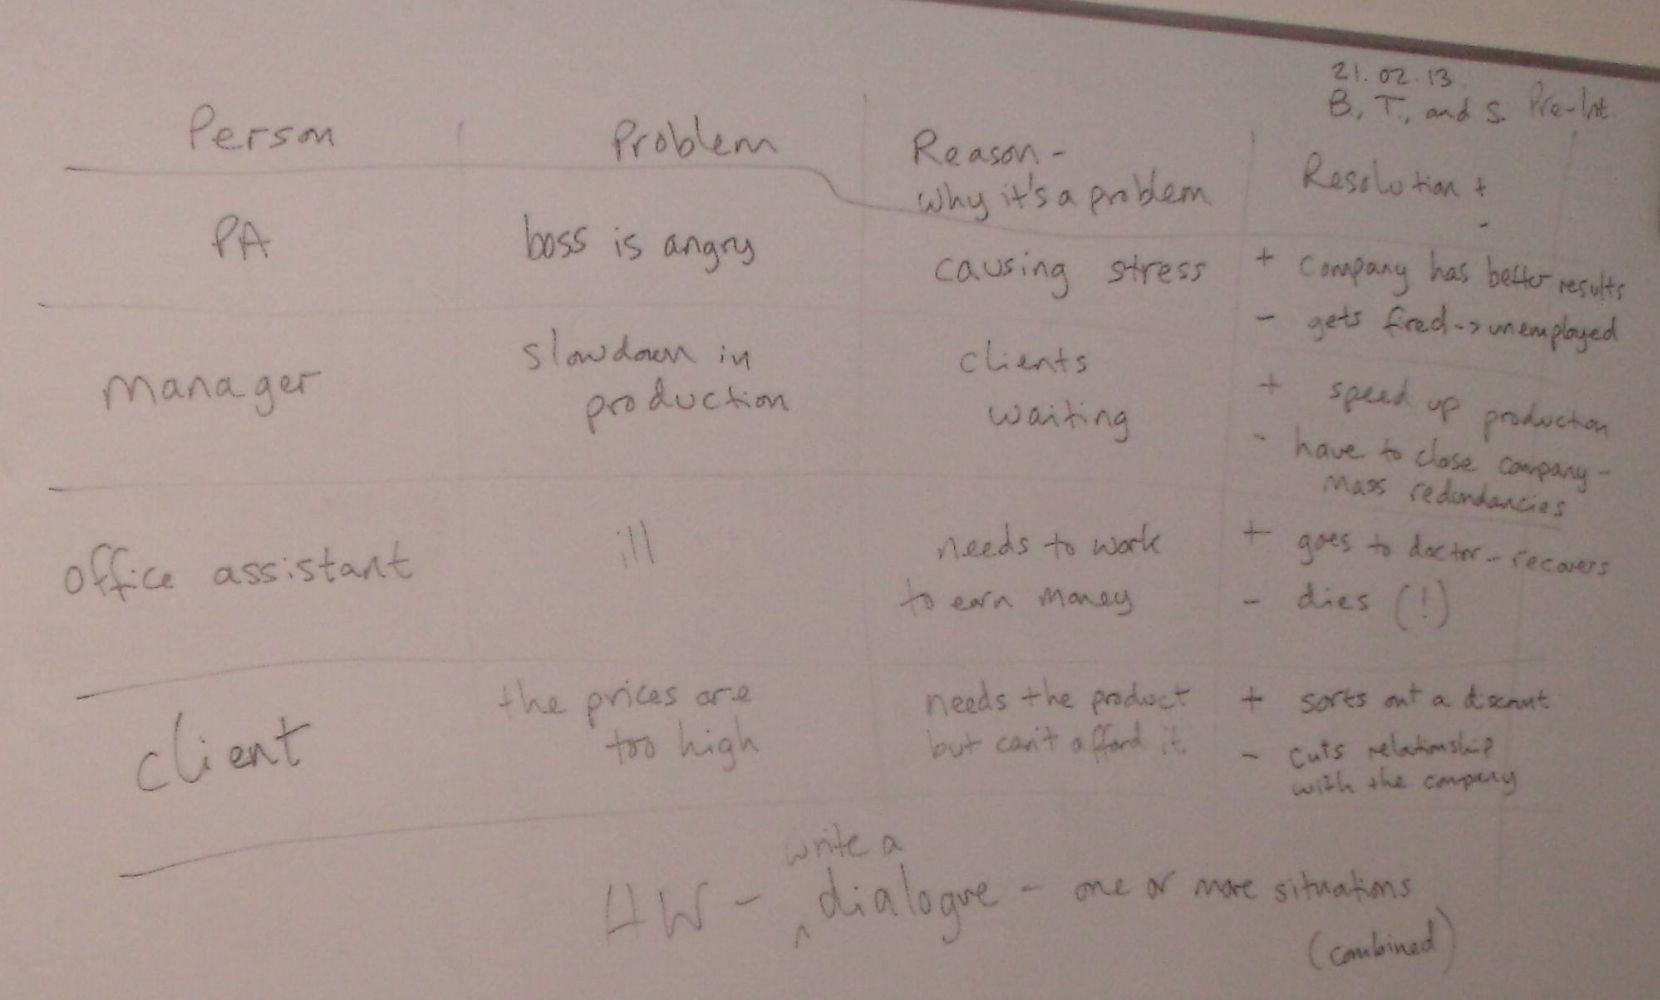 21.02.13.
B, T, and S. Pre-Int.
Person
Problem
Reason -
why it's a problem
Resolution +
-
PA
boss is angry
causing stress
+ company has better results
- gets fired -> unemployed
manager
slowdown in
production
clients
waiting
+ speed up production
- have to close company -
mass redundancies
office assistant
ill
needs to work
to earn money
+ goes to doctor - recovers
- dies (!)
client
the prices are
too high
needs the product
but can't afford it.
+ sorts out a discount
- cuts relationship
with the company
write a
HW - ^ dialogue - one or more situations
(combined)